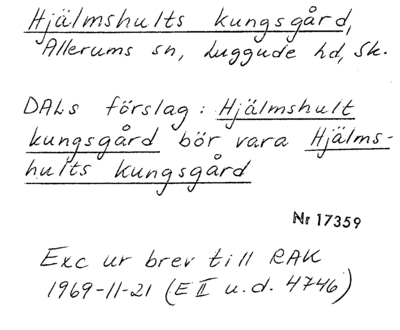 Hjälmshults kungsgård,
Allerums sn, Luggude hd, Sk.
DALs förslag: Hjälmshult
kungsgård bör vara Hjälms-
hults kungsgård
Nr 17359
Exc ur brev till RAK
1969-11-21 (E II u.d. 4746)